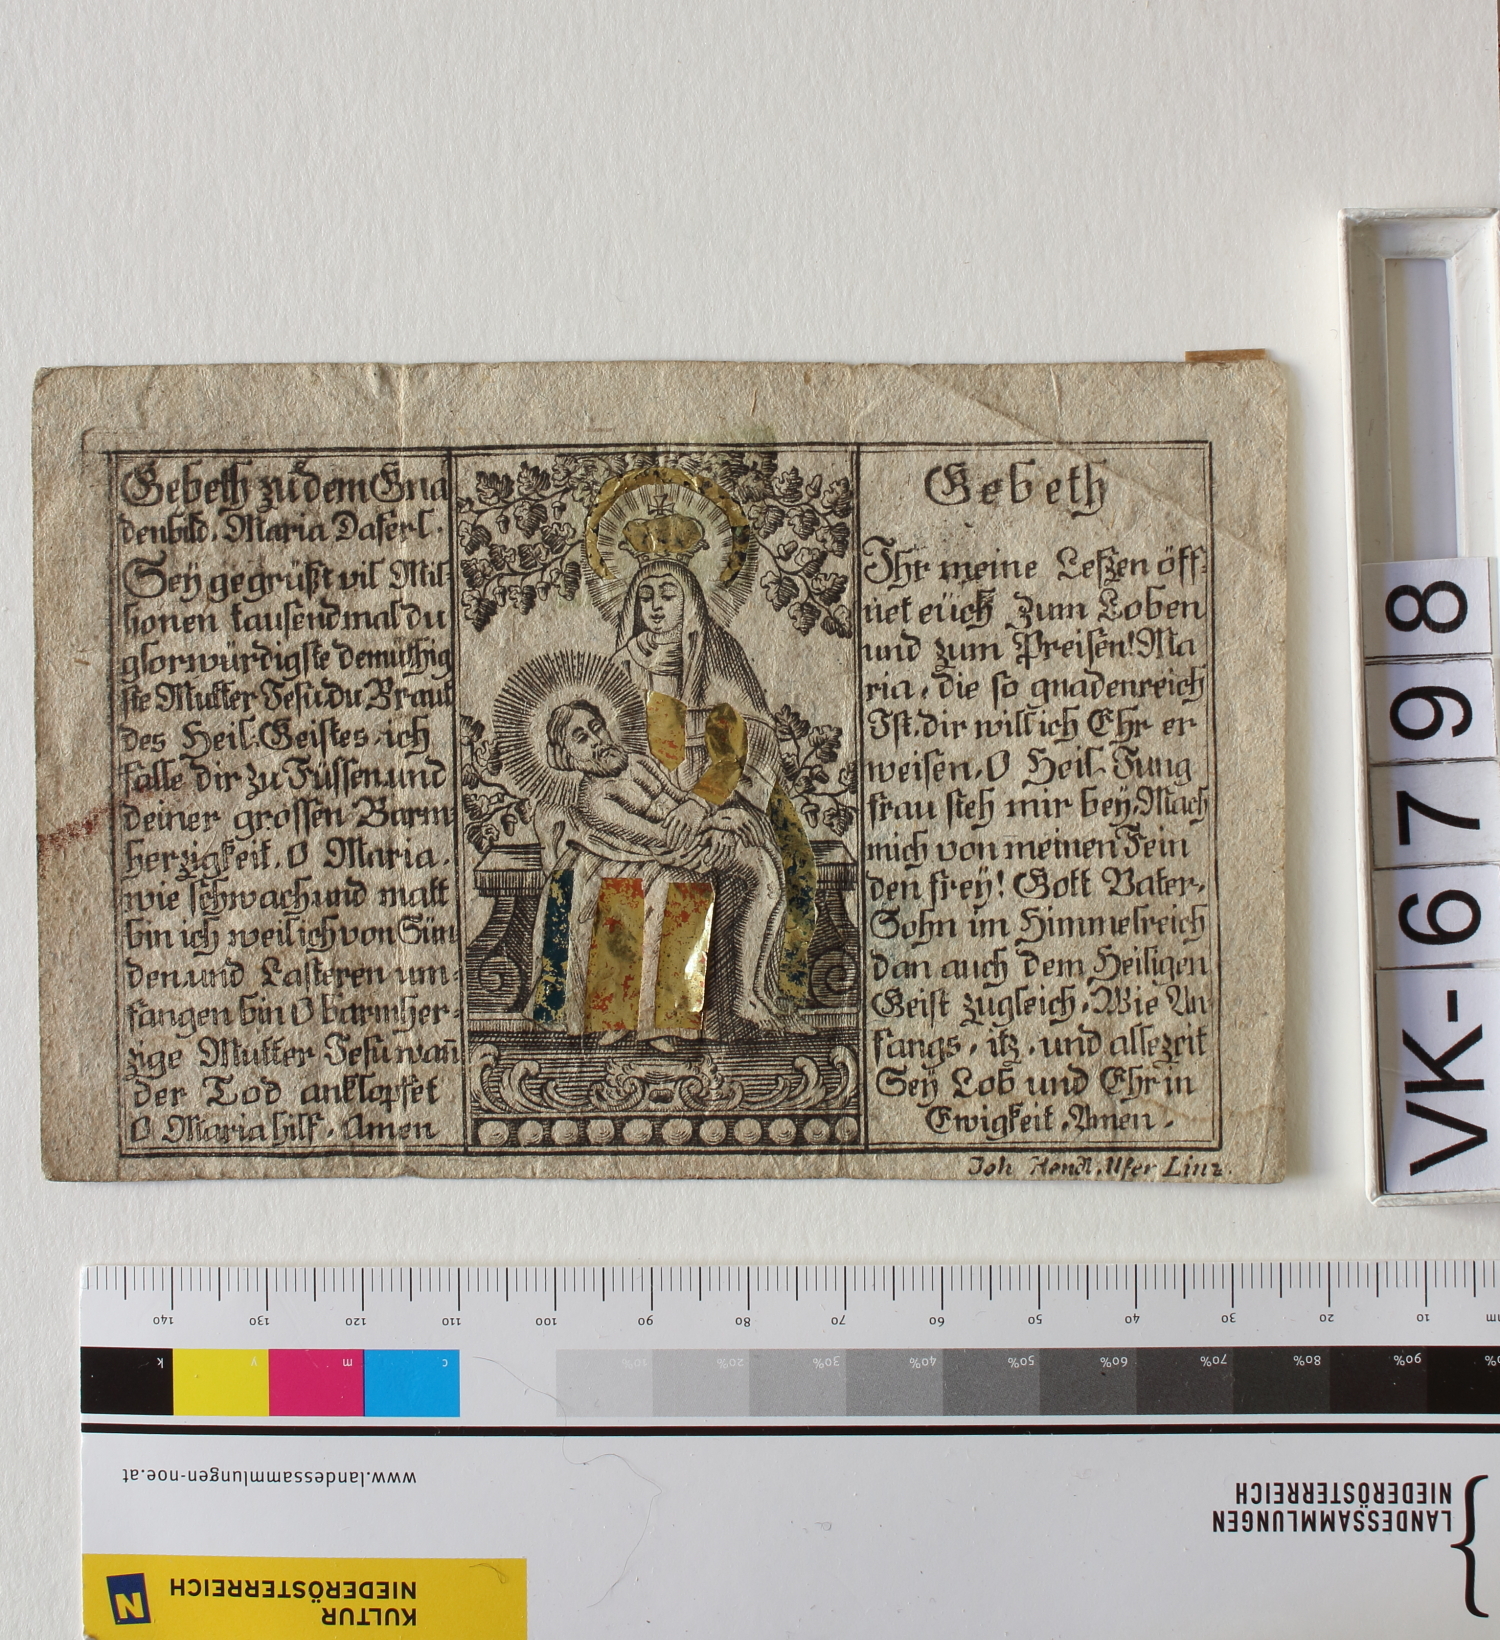 Gebeth zu dem Gna
denbild, Maria Daferl.
Seÿ gegrüßt vil Mil-
lionen tausendmal du
glorwürdigste demüthig
ste Mutter Jesu du Braut
des Heil. Geistes, ich
falle dir zu Füssen und
deiner grossen Barm-
herzigkeit, O Maria.
wie schwach und matt
bin ich weil ich von Sün
den und Lasteren um-
fangen bin O barmher-
zige Mutter Jesu wan̄
der Tod anklopfet
O Maria hilf, Amen
Gebeth
Ihr meine Leßzen öff-
net eüch zum Loben
und zum Preisen! Ma
ria, die so gnadenreich
Ist, dir will ich Ehr er
weisen, O Heil. Jung
frau steh mir beÿ, Mach
mich von meinen Fein
den freÿ! Gott Vater,
Sohn im Himmelreich
dan auch dem Heiligen
Geist zugleich, Wie An
fangs, itz, und allezeit
Seÿ Lob und Ehr in
Ewigkeit, Amen.
Joh Linz.
VK-6798
140 130 120 110 100 90 80 70 60 50 40 30 20 10 mm
k y m c 10% 20% 30% 40% 50% 60% 70% 80% 90%
www.landessammlungen-noe.at
LANDESSAMMLUNGEN
NIEDERÖSTERREICH
KULTUR
NIEDERÖSTERREICH
N